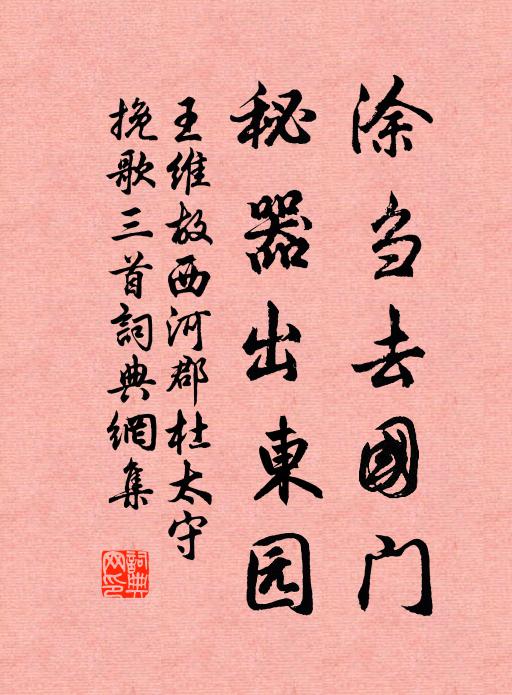 涂刍去國门
秘器出東园
王维故西河郡杜太守
挽歌三首詞典網集
詞典网印